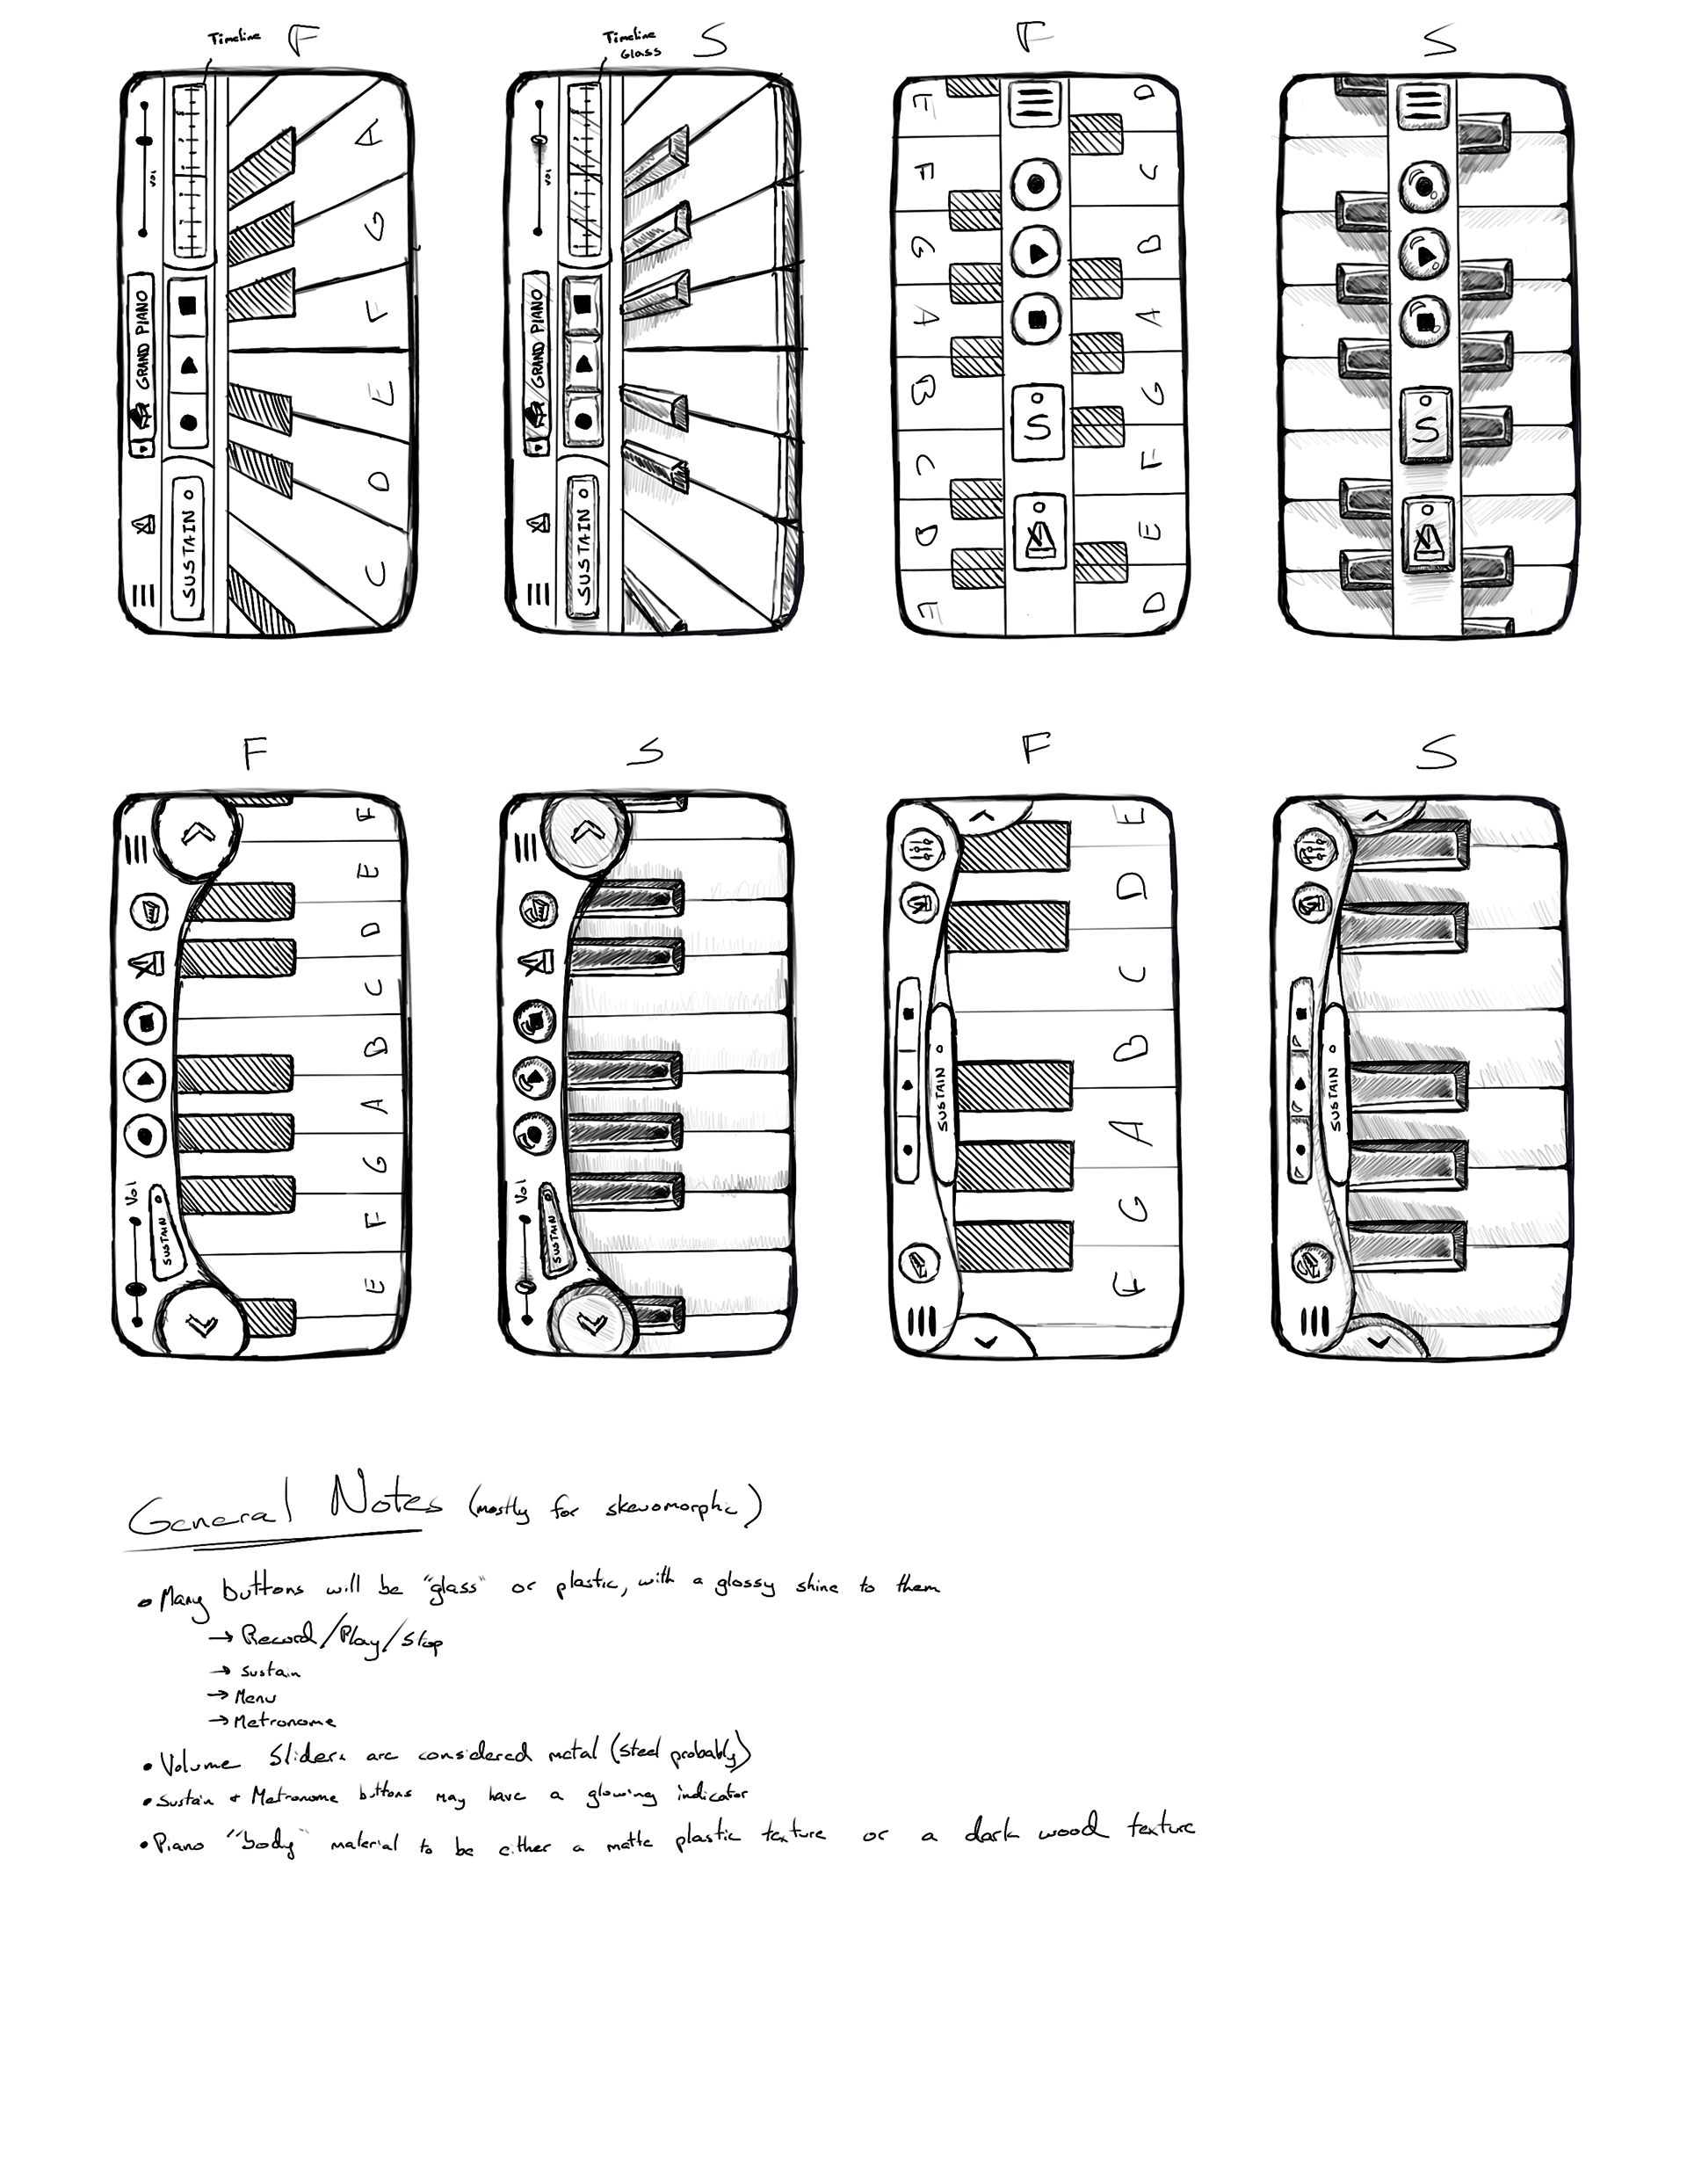 Timeline F
Timeline Glass S
F
S
VOL
GRAND PIANO
SUSTAIN
C D E F G A
VOL
GRAND PIANO
SUSTAIN
E F G A B C D E
D C B A G F E D
S
S
F
S
F
S
Vol
SUSTAIN
E F G A B C D E F
Vol
SUSTAIN
SUSTAIN
F G A B C D E
SUSTAIN
General Notes (mostly for skevomorphic)
• Many buttons will be "glass" or plastic, with a glossy shine to them
→ Record/Play/Stop
→ Sustain
→ Menu
→ Metronome
• Volume Sliders are considered metal (steel probably)
• Sustain + Metronome buttons may have a glowing indicator
• Piano "body" material to be either a matte plastic texture or a dark wood texture